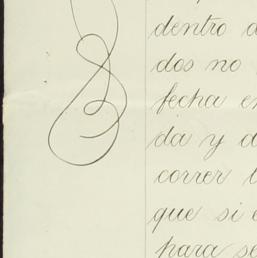 dentro d
dos no
fecha en
da y d
correr l
que si e
para se